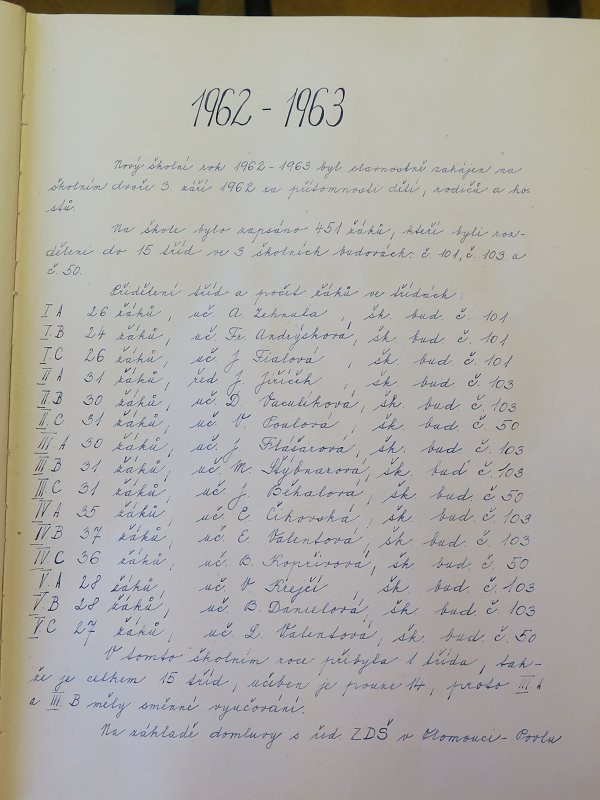 1962 - 1963
Nový školní rok 1962-1963 byl slavnostně zahájen na
školním dvoře 3. září 1962 za přítomnosti dětí, rodičů a ho-
stů.
Na škole bylo zapsáno 451 žáků, kteří byli roz-
děleni do 15 tříd ve 3 školních budovách: č. 101, č. 103 a
č. 50.
Přidělení tříd a počet žáků ve třídách:
I.A 26 žáků, uč. A. Žehnula, šk. bud. č. 101
I.B 24 žáků, uč. Fr. Andrýsková, šk. bud. č. 101
I.C 26 žáků, uč. J. Fialová, šk. bud. č. 101
II.A 31 žáků, řed. J. Jiříček, šk. bud. č. 103
II.B 30 žáků, uč. D. Vaculíková, šk. bud. č. 103
II.C 31 žáků, uč. V. Coufová, šk. bud. č. 50
III.A 30 žáků, uč. J. Flášarová, šk. bud. č. 103
III.B 31 žáků, uč. M. Stýbnarová, šk. bud. č. 103
III.C 31 žáků, uč. J. Běhalová, šk. bud. č. 50
IV.A 35 žáků, uč. E. Čihovská, šk. bud. č. 103
IV.B 37 žáků, uč. E. Valentová, šk. bud. č. 103
IV.C 36 žáků, uč. B. Kopřivová, šk. bud. č. 50
V.A 28 žáků, uč. V. Krejčí, šk. bud. č. 103
V.B 28 žáků, uč. B. Danielová, šk. bud. č. 103
V.C 27 žáků, uč. L. Valentová, šk. bud. č. 50
V tomto školním roce přibyla 1 třída, tak-
že je celkem 15 tříd, učeben je pouze 14, proto III. A
a III. B měly směnné vyučování.
Na základě domluvy s řed. ZDŠ v Olomouci-Povlu